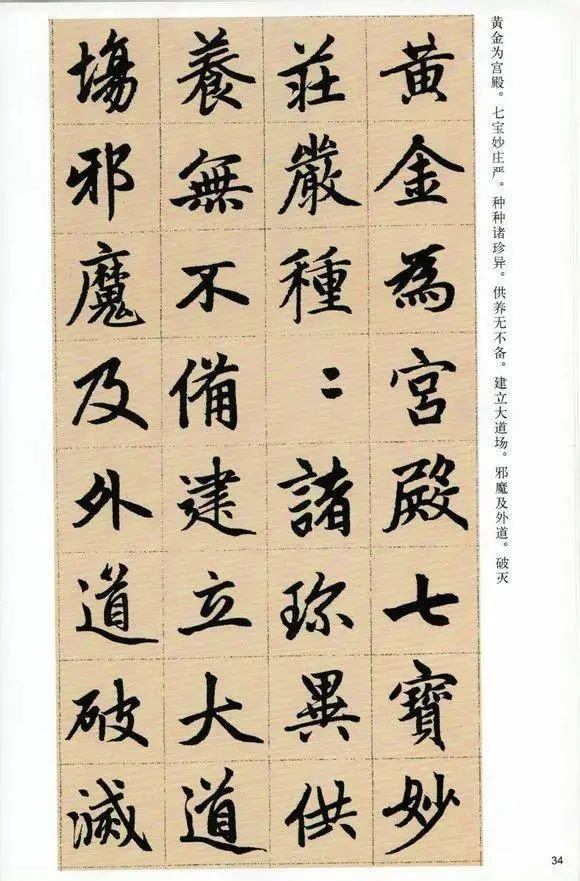 黄金为宫殿。七宝妙庄严。种种诸珍异。供养无不备。建立大道场。邪魔及外道。破灭
黃金為宮殿七寶妙
莊嚴種〻諸珎異供
養無不備建立大道
場邪魔及外道破滅
34